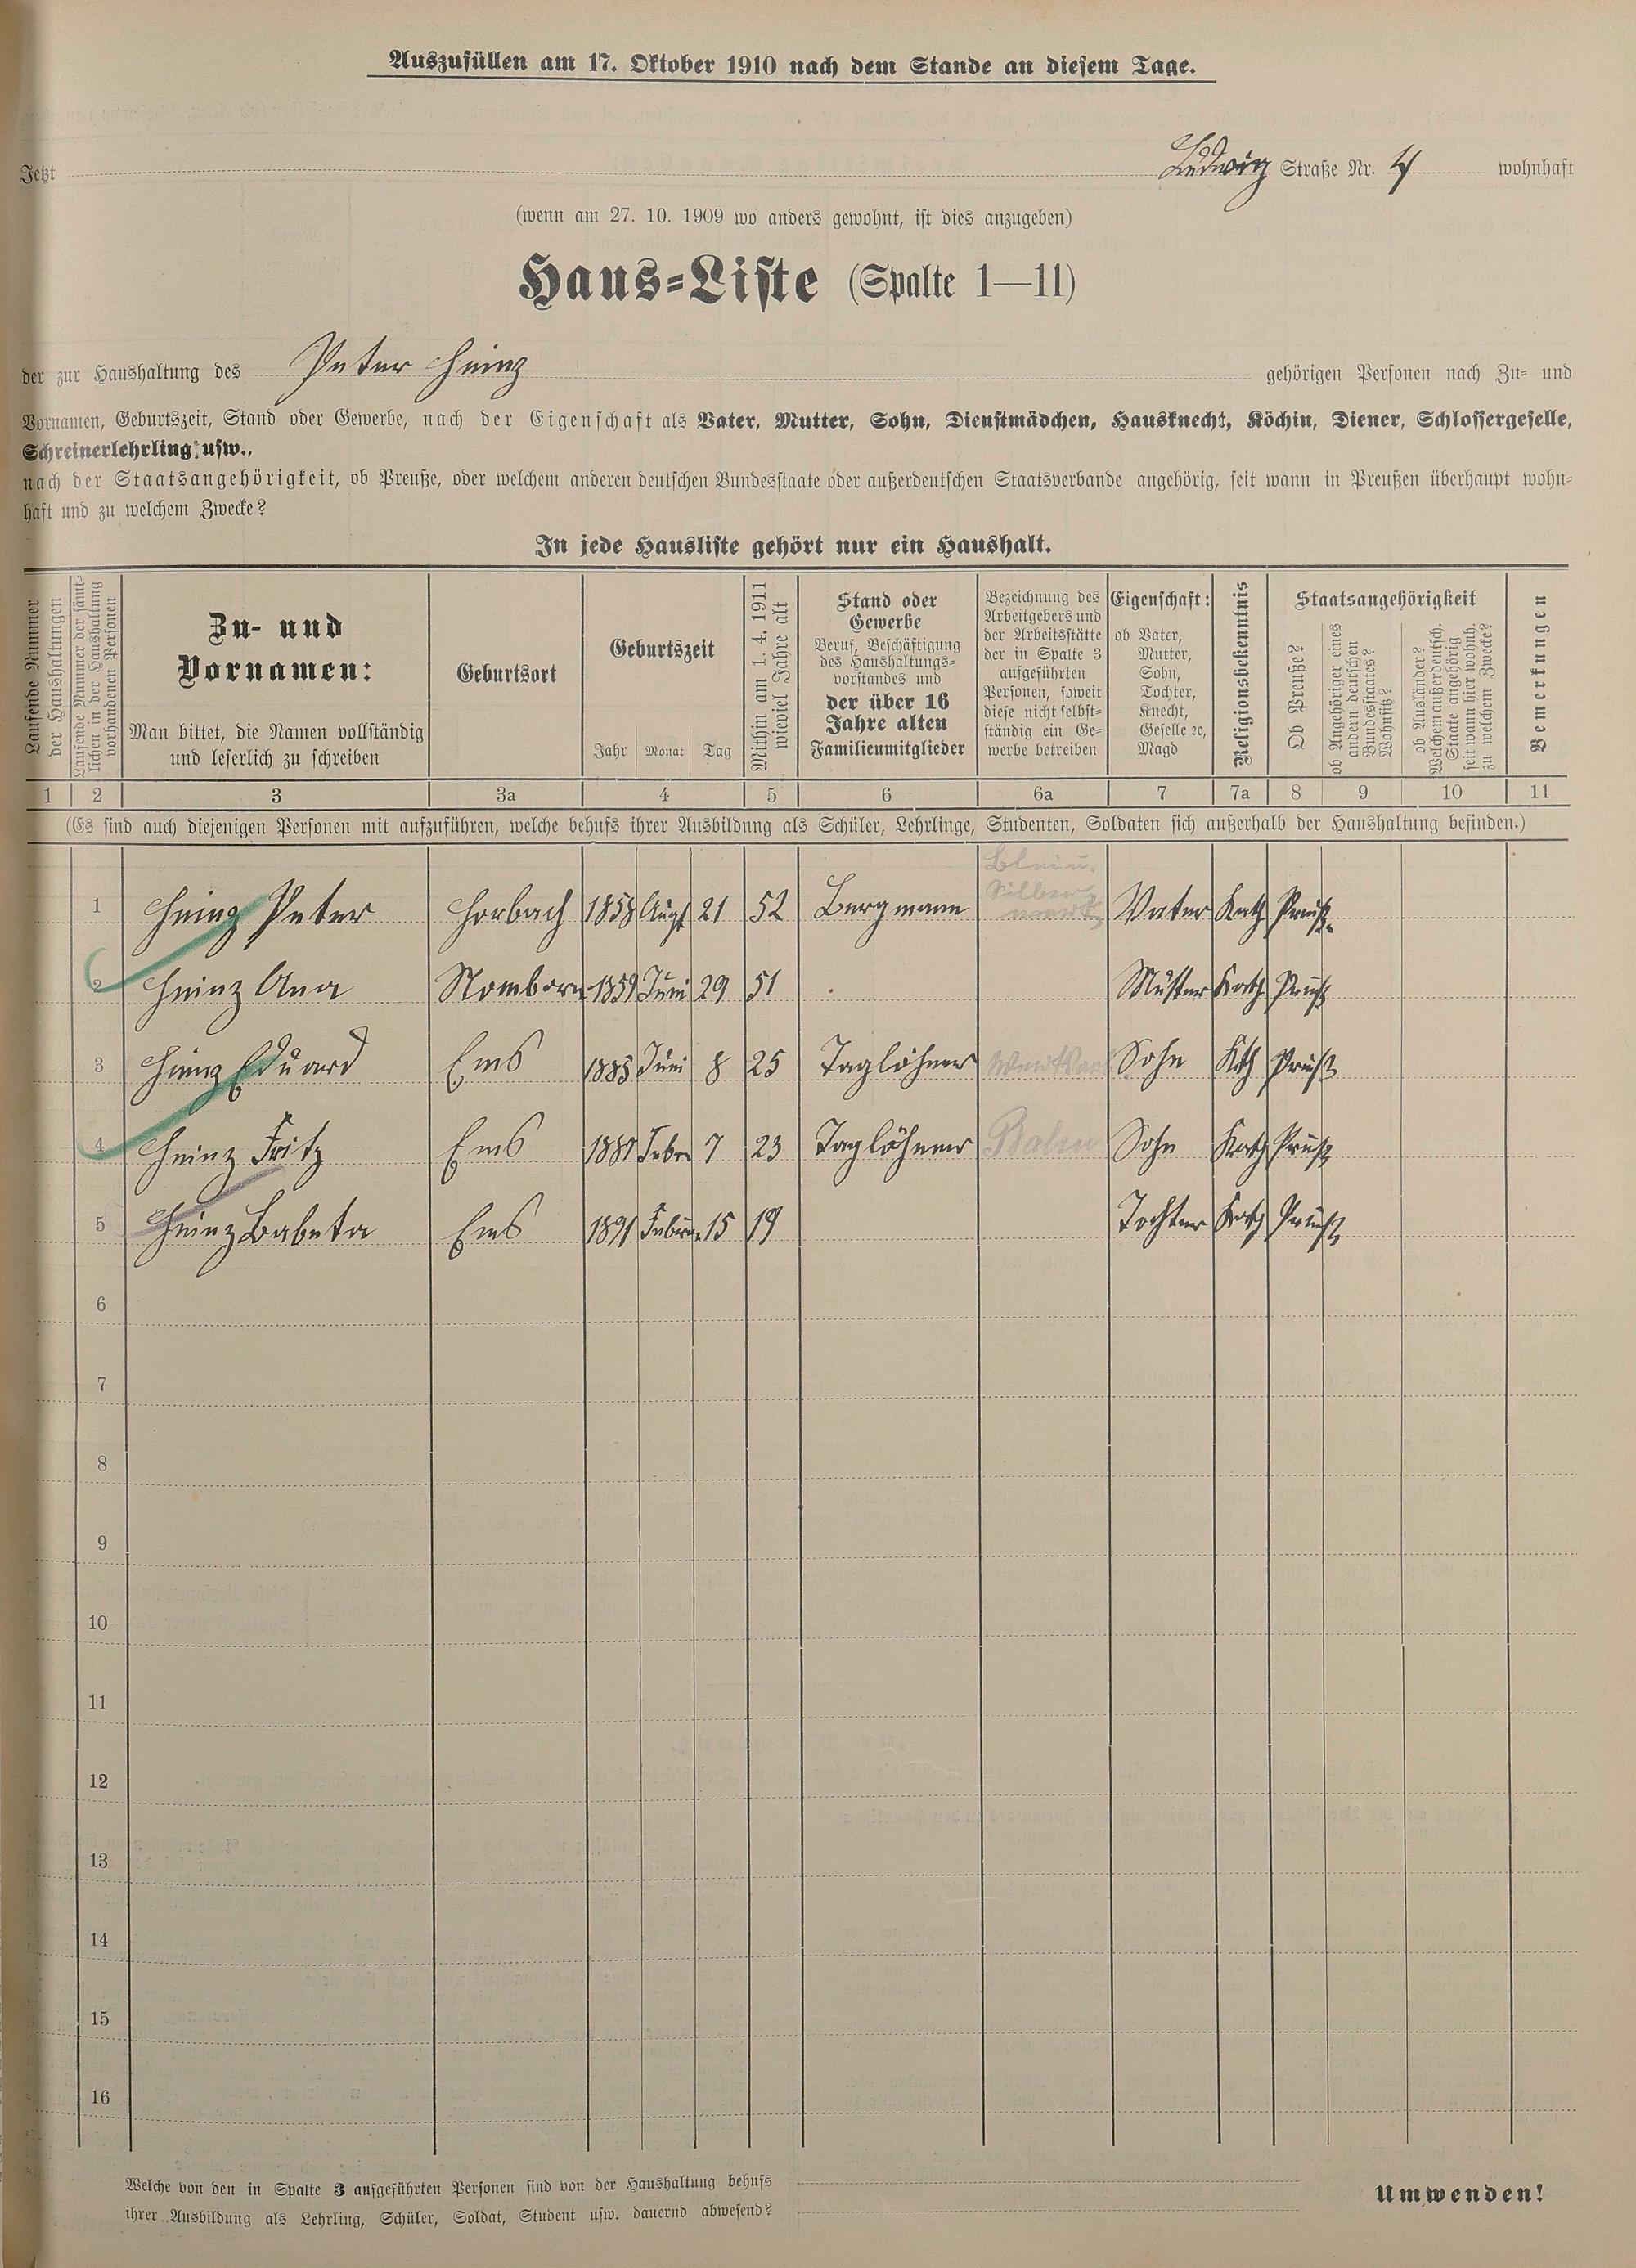 Auszufüllen am 17. Oktober 1910 nach dem Stande an diesem Tage.
Jetzt Ludwig Straße Nr. 4 wohnhaft
(wenn am 27. 10. 1909 wo anders gewohnt, ist dies anzugeben)
Haus=Liste (Spalte 1—11)
der zur Haushaltung des Peter Heinz gehörigen Personen nach Zu= und
Vornamen, Geburtszeit, Stand oder Gewerbe, nach der Eigenschaft als Vater, Mutter, Sohn, Dienstmädchen, Hausknecht, Köchin, Diener, Schlossergeselle,
Schreinerlehrling usw.,
nach der Staatsangehörigkeit, ob Preuße, oder welchem anderen deutschen Bundesstaate oder außerdeutschen Staatsverbande angehörig, seit wann in Preußen überhaupt wohn=
haft und zu welchem Zwecke?
In jede Hausliste gehört nur ein Haushalt.
Laufende Nummer
der Haushaltungen
Laufende Nummer der sämt=
lichen in der Haushaltung
vorhandenen Personen
Zu- und
Vornamen:
Man bittet, die Namen vollständig
und leserlich zu schreiben
Geburtsort
Geburtszeit
Jahr Monat Tag
Mithin am 1. 4. 1911
wieviel Jahre alt
Stand oder
Gewerbe
Beruf, Beschäftigung
des Haushaltungs=
vorstandes und
der über 16
Jahre alten
Familienmitglieder
Bezeichnung des
Arbeitgebers und
der Arbeitsstätte
der in Spalte 3
aufgeführten
Personen, soweit
diese nicht selbst=
ständig ein Ge=
werbe betreiben
Eigenschaft:
ob Vater,
Mutter,
Sohn,
Tochter,
Knecht,
Geselle ec,
Magd
Religionsbekenntnis
Staatsangehörigkeit
Ob Preuße?
ob Angehöriger eines
andern deutschen
Bundesstaates?
Wohnsitz?
ob Ausländer?
Welchem außerdeutsch.
Staate angehörig
seit wann hier wohnh.
zu welchem Zwecke?
Bemerkungen
1 2 3 3a 4 5 6 6a 7 7a 8 9 10 11
(Es sind auch diejenigen Personen mit aufzuführen, welche behufs ihrer Ausbildung als Schüler, Lehrlinge, Studenten, Soldaten sich außerhalb der Haushaltung befinden.)
Blei u.
Silber
werk
1 Heinz Peter Horbach 1858 Augst 21 52 Bergmann Vater Kath Preuß.
2 Heinz Ana Nomborn 1859 Juni 29 51 Mutter Kath Preuß
3 Heinz Eduard Ems 1885 Juni 8 25 Taglöhner Sohn Kth Preuß
4 Heinz Fritz Ems 1887 Febr 7 23 Taglöhner Bahn Sohn Kath Preuß
5 Heinz Babeta Ems 1891 15 19 Tochter Kath Preuß
6
7
8
9
10
11
12
13
14
15
16
Welche von den in Spalte 3 aufgeführten Personen sind von der Haushaltung behufs
ihrer Ausbildung als Lehrling, Schüler, Soldat, Student usw. dauernd abwesend?
Umwenden!